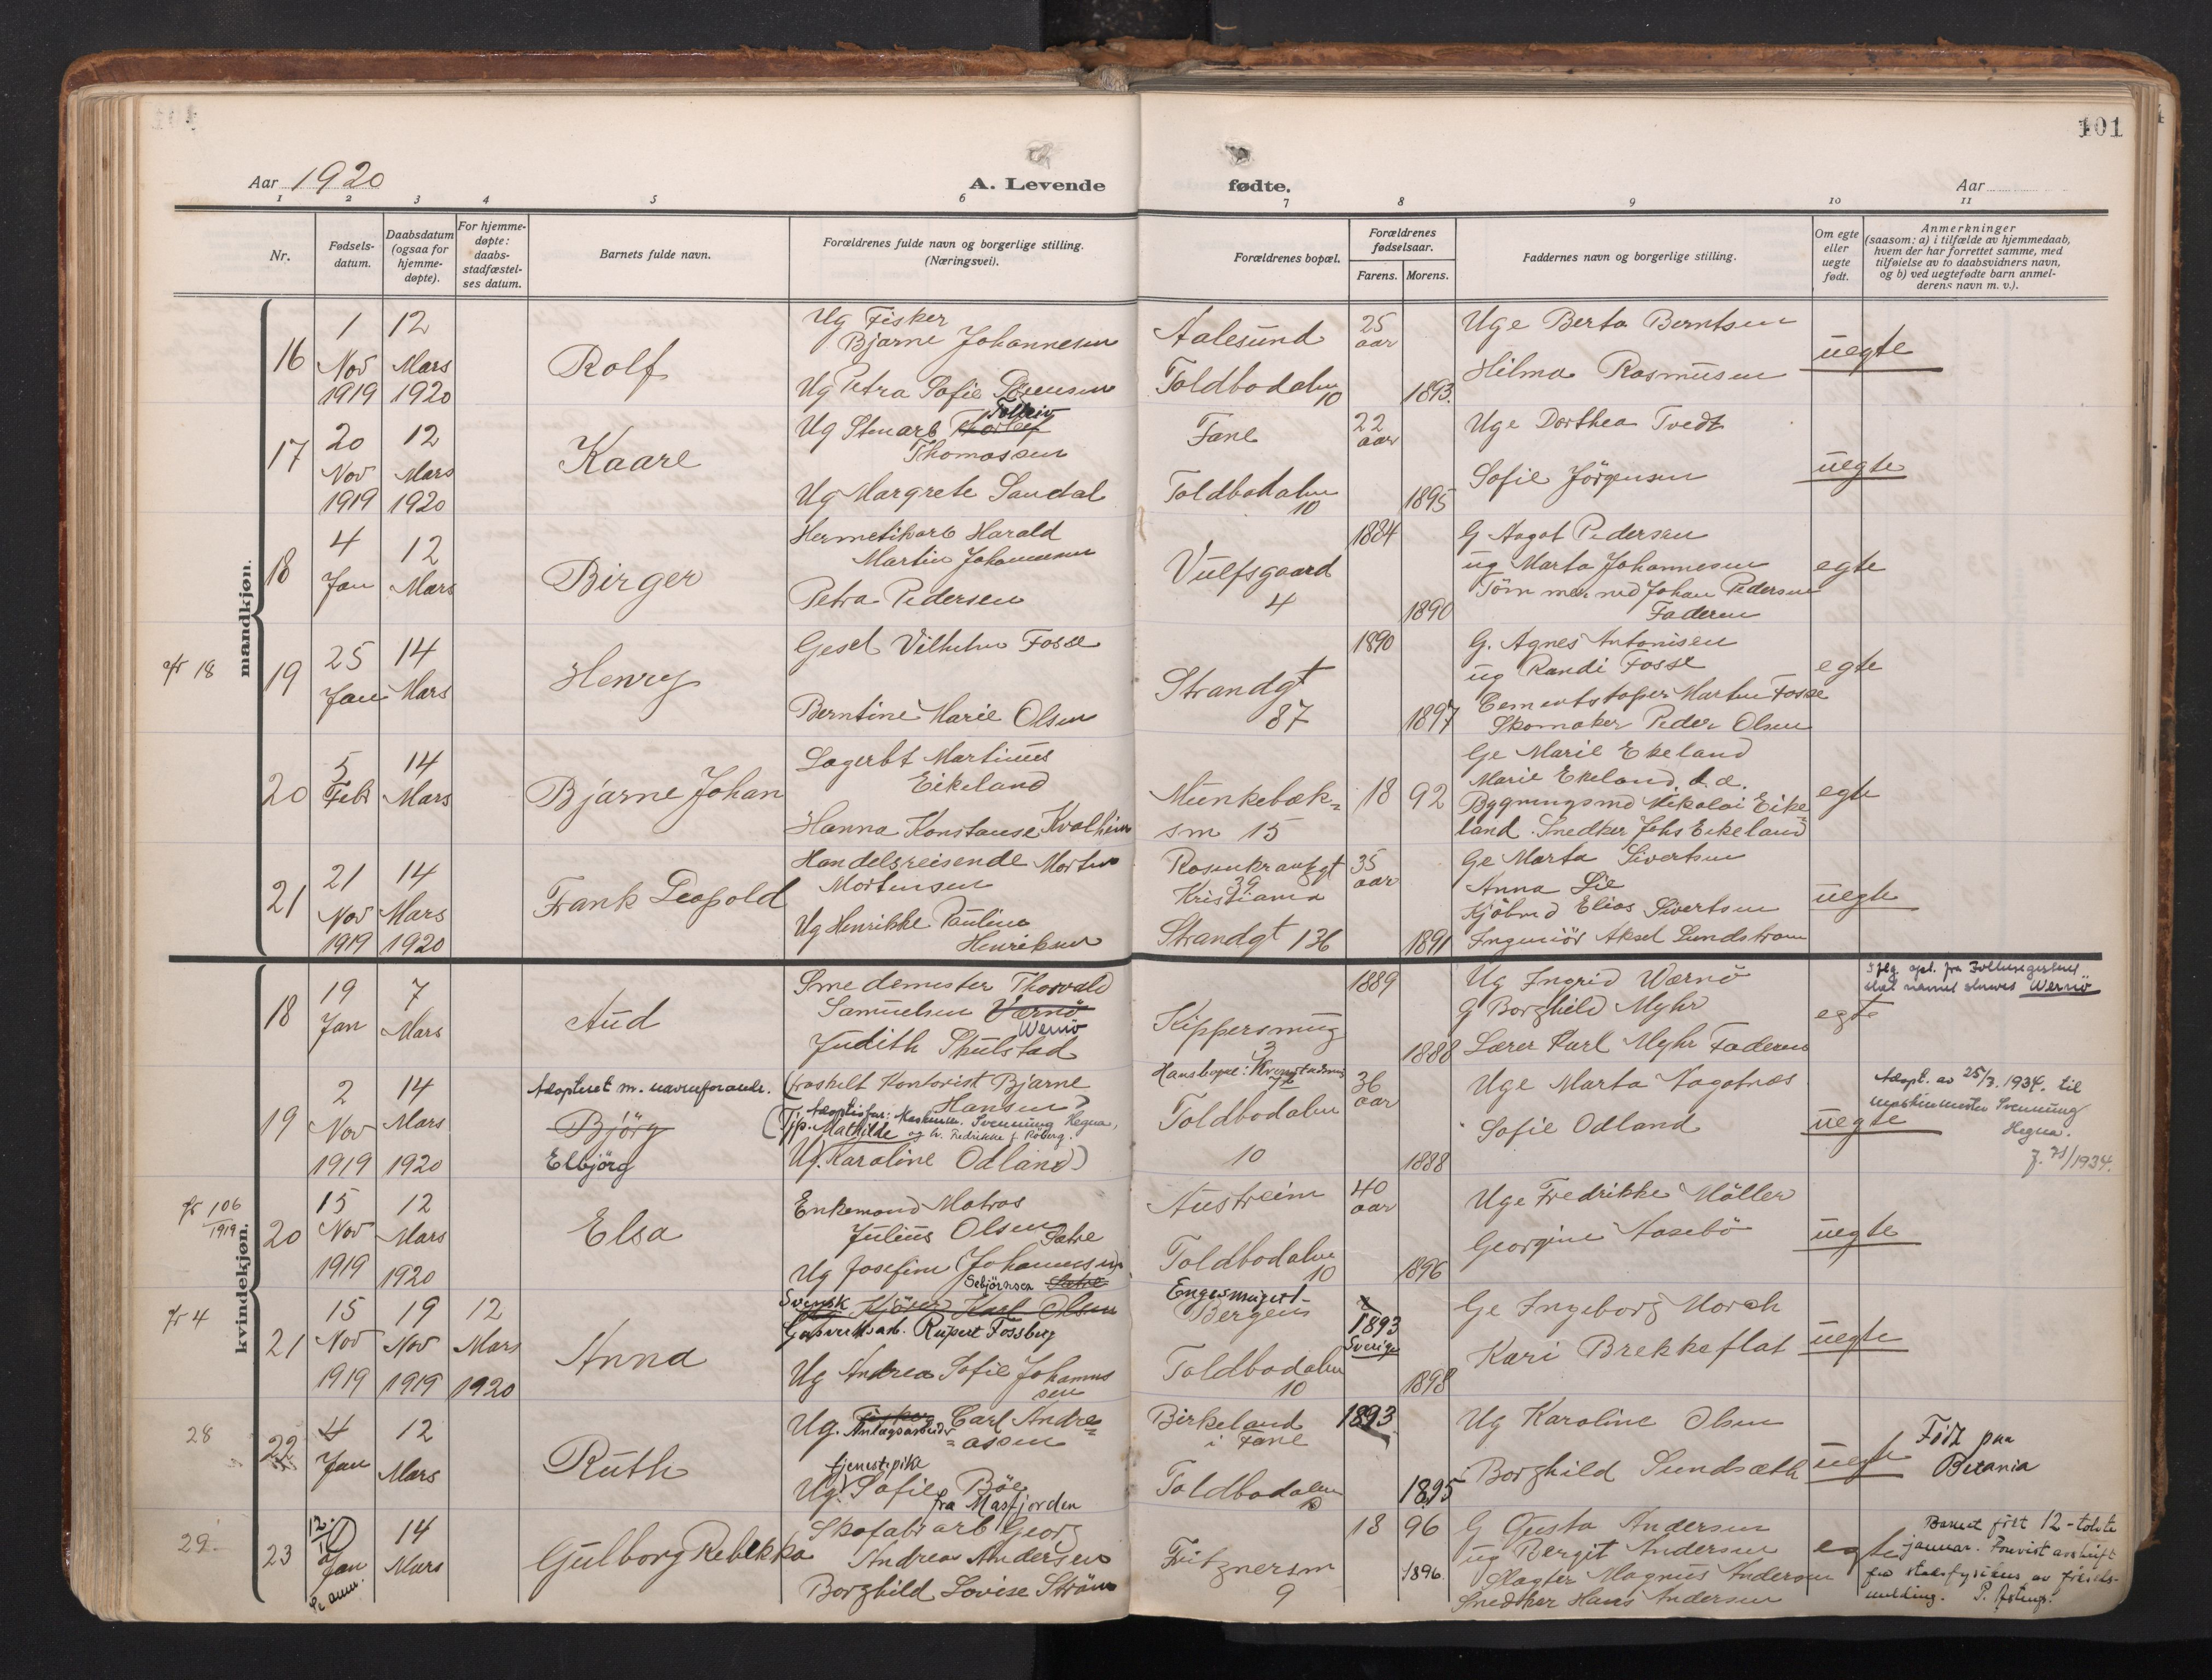 101
Aar 1920
A. Levende fødte.
Aar
1 2 3 4 5 6 7 8 9 10 11
Nr.
Fødselsdatum.
Daabsdatum (ogsaa for hjemmedøpte).
For hjemmedøpte: daabsstadfæstelses datum.
Barnets fulde navn.
Forældrenes fulde navn og borgerlige stilling. (Næringsvei).
Forældrenes bopæl.
Forældrenes fødselsaar.
Farens. Morens.
Faddernes navn og borgerlige stilling.
Om egte eller uegte født.
Anmerkninger
(saasom: a) i tilfælde av hjemmedaab,
hvem der har forrettet samme, med
tilføielse av to daabsvidners navn,
og b) ved uegtefødte barn anmelderens navn m. v.).
mandkjøn.
16
1 Nov 1919
12 Mars 1920
Rolf
Ug Fisker
Bjarne Johannesen
Ug Petra Sofie
Aalesund
Toldbodalm 10
25 aar
1893.
Uge Berta Berntsen
Hilma Rasmusen
uegte
17
20 Nov 1919
12 Mars 1920
Kaare
Ug Stuarb Thorleif
Tolleiv
Thomassen
Ug Margrete Sandal
Fane
Toldbodalm 10
22 aar
1895
Uge Dorthea Tvedt
Sofie Jörgensen
uegte
18
4 Jan
12 Mars
Birger
Hermetikarb Harald
Martin Johannesen
Petra Pedersen
Vulfsgaard
4
1884
1890
G Aagot Pedersen
ug Marta Johannesen
Tömmermd Johan Pedersen
Faderen
egte
18
19
25 Jan
14 Mars
Henry
Gesel Vilhelm Fosse
Berntine Marie Olsen
Strandgt
87
1890
1897
G. Agnes Antonisen
ug Randi Fosse
Cementstøper Martin Fosse
Skomaker Peder Olsen
egte
20
5 Feb
14 Mars
Bjarne Johan
Lagerbt Martinus
Eikeland
Hanna Konstanse Kvalheim
Munkebæk-
sm 15
18 92
Ge Marie Ekeland
Marie Ekeland. d. æ.
Bygningsmd Nikolai Eike
land. Snedker Johs Eikeland
egte
21
21 Nov 1919
14 Mars 1920
Frank Leopold
Handelsreisende Morten
Mortensen
Ug Henrikke Pauline
Henriksen
Rosenkrantzgt
39
Kristiania
Strandgt 136
35 aar
1891
Ge Marta Sivertsen
Anna Lie
Kjöbmd Elias Sivertsen
Ingeniör Aksel Lundstrom
uegte
kvindekjøn.
18
19 Jan
7 Mars
Aud
Smedemester Thorvald
Samuelsen Værnö
Wernö
Judith Skulstad
Kippersmug
3
1889
1888
Ug Ingrid Wærnö
G Borghild Myhr
Lærer Karl Myhr Faderen
egte
Iflg. opl. fra Folkeregistret
skal navnet skrives Wernö
19
2 Nov 1919
14 Mars 1920
Adoptert m. navneforandr.
Bjørg
Elbjörg
(fraskilt Kontorist Bjarne
Hansen)
Adoptivfar: Maskinm. Svenning Hegna,
og h. Fredrikke f. Röberg.
(Tjp. Mathilde
Ug. Karoline Odland)
Toldbodalm
10
36 aar
1888
Uge Marta Aagotnæs
Sofie Odland
uegte
Adopt. av 25/3. 1934. til
maskinmester Svenning
Hegna.
1934.
106
1919
20
15 Nov 1919
12 Mars 1920
Elsa
Enkemand Matros
Julius Olsen
Sætre
Ug Josefine (Johannesen)
Sebjörnsen
Austreim
Toldbodalm
10
40 aar
1896
Uge Fredrikke Möller
Georgine Aasebö
uegte
4
21
15 Nov 1919
19 Nov 1919
12 Mars 1920
Anna
Svensk
Karl Olsen
Gasverksarb. Rupert Fossberg
Ug Andrea Sofie Johannes
sen
Engesmuget
Bergen
Toldbodalm
10
1893
Sverige
1898
Ge Ingeborg Morch
Kari Brekkeflat
uegte
28
22
4 Jan
12 Mars
Ruth
Ug. Fisker Carl Andre=
Anlægsarbeider
=assen
tjenestepike
Ug. Sofie Böe
fra Masfjorden
Birkeland
i Fane
Toldbodalm
10
1893
1895
Ug Karoline Olsen
Borghild Sundsæth
uegte
Født paa
Betania
29
23
12.
Jan
14 Mars
Gulborg Rebekka
Skofabrarb Georg
Andreas Andersen
Borghild Lovise Ström
Fritznersm
9
18 96
1896.
G Gusta Andersen
ug Bergit Andersen
Slagter Magnus Andersen
Snedker Hans Andersen
egte
Barnet født 12-tolvte
januar. Forevist avskrift
fra statsfysikus av fødsels-
melding.